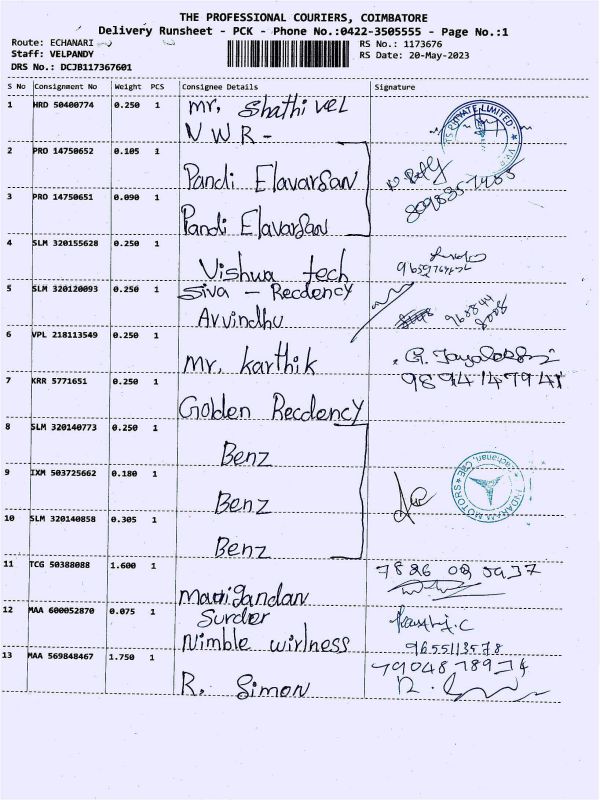 THE PROFESSIONAL COURIERS, COIMBATORE
Delivery Runsheet - PCK - Phone No.:0422-3505555 - Page No.:1
Route: ECHANARI
RS No.: 1173676
Staff: VELPANDY
RS Date: 20-May-2023
DRS No.: DCJB117367601
S No Consignment No Weight PCS Consignee Details Signature
1 HRD 50400774 0.250 1 mr. Shathivel
N W R -
2 PRO 14750652 0.105 1
Pandi Elavarsan
3 PRO 14750651 0.090 1
Pandi Elavarsan
4 SLM 320155628 0.250 1
Vishwa tech
5 SLM 320120093 0.250 1 Siva - Recdency
Arvindhu
6 VPL 218113549 0.250 1
mr. karthik
9894147941
7 KRR 5771651 0.250 1
Golden Recdency
8 SLM 320140773 0.250 1
Benz
9 IXM 503725662 0.180 1
Benz
10 SLM 320140858 0.305 1
Benz
11 TCG 50388088 1.600 1
Manigandan
12 MAA 600052870 0.075 1 Surder
Nimble wirlness
9655113578
13 MAA 569848467 1.750 1
R. Simon